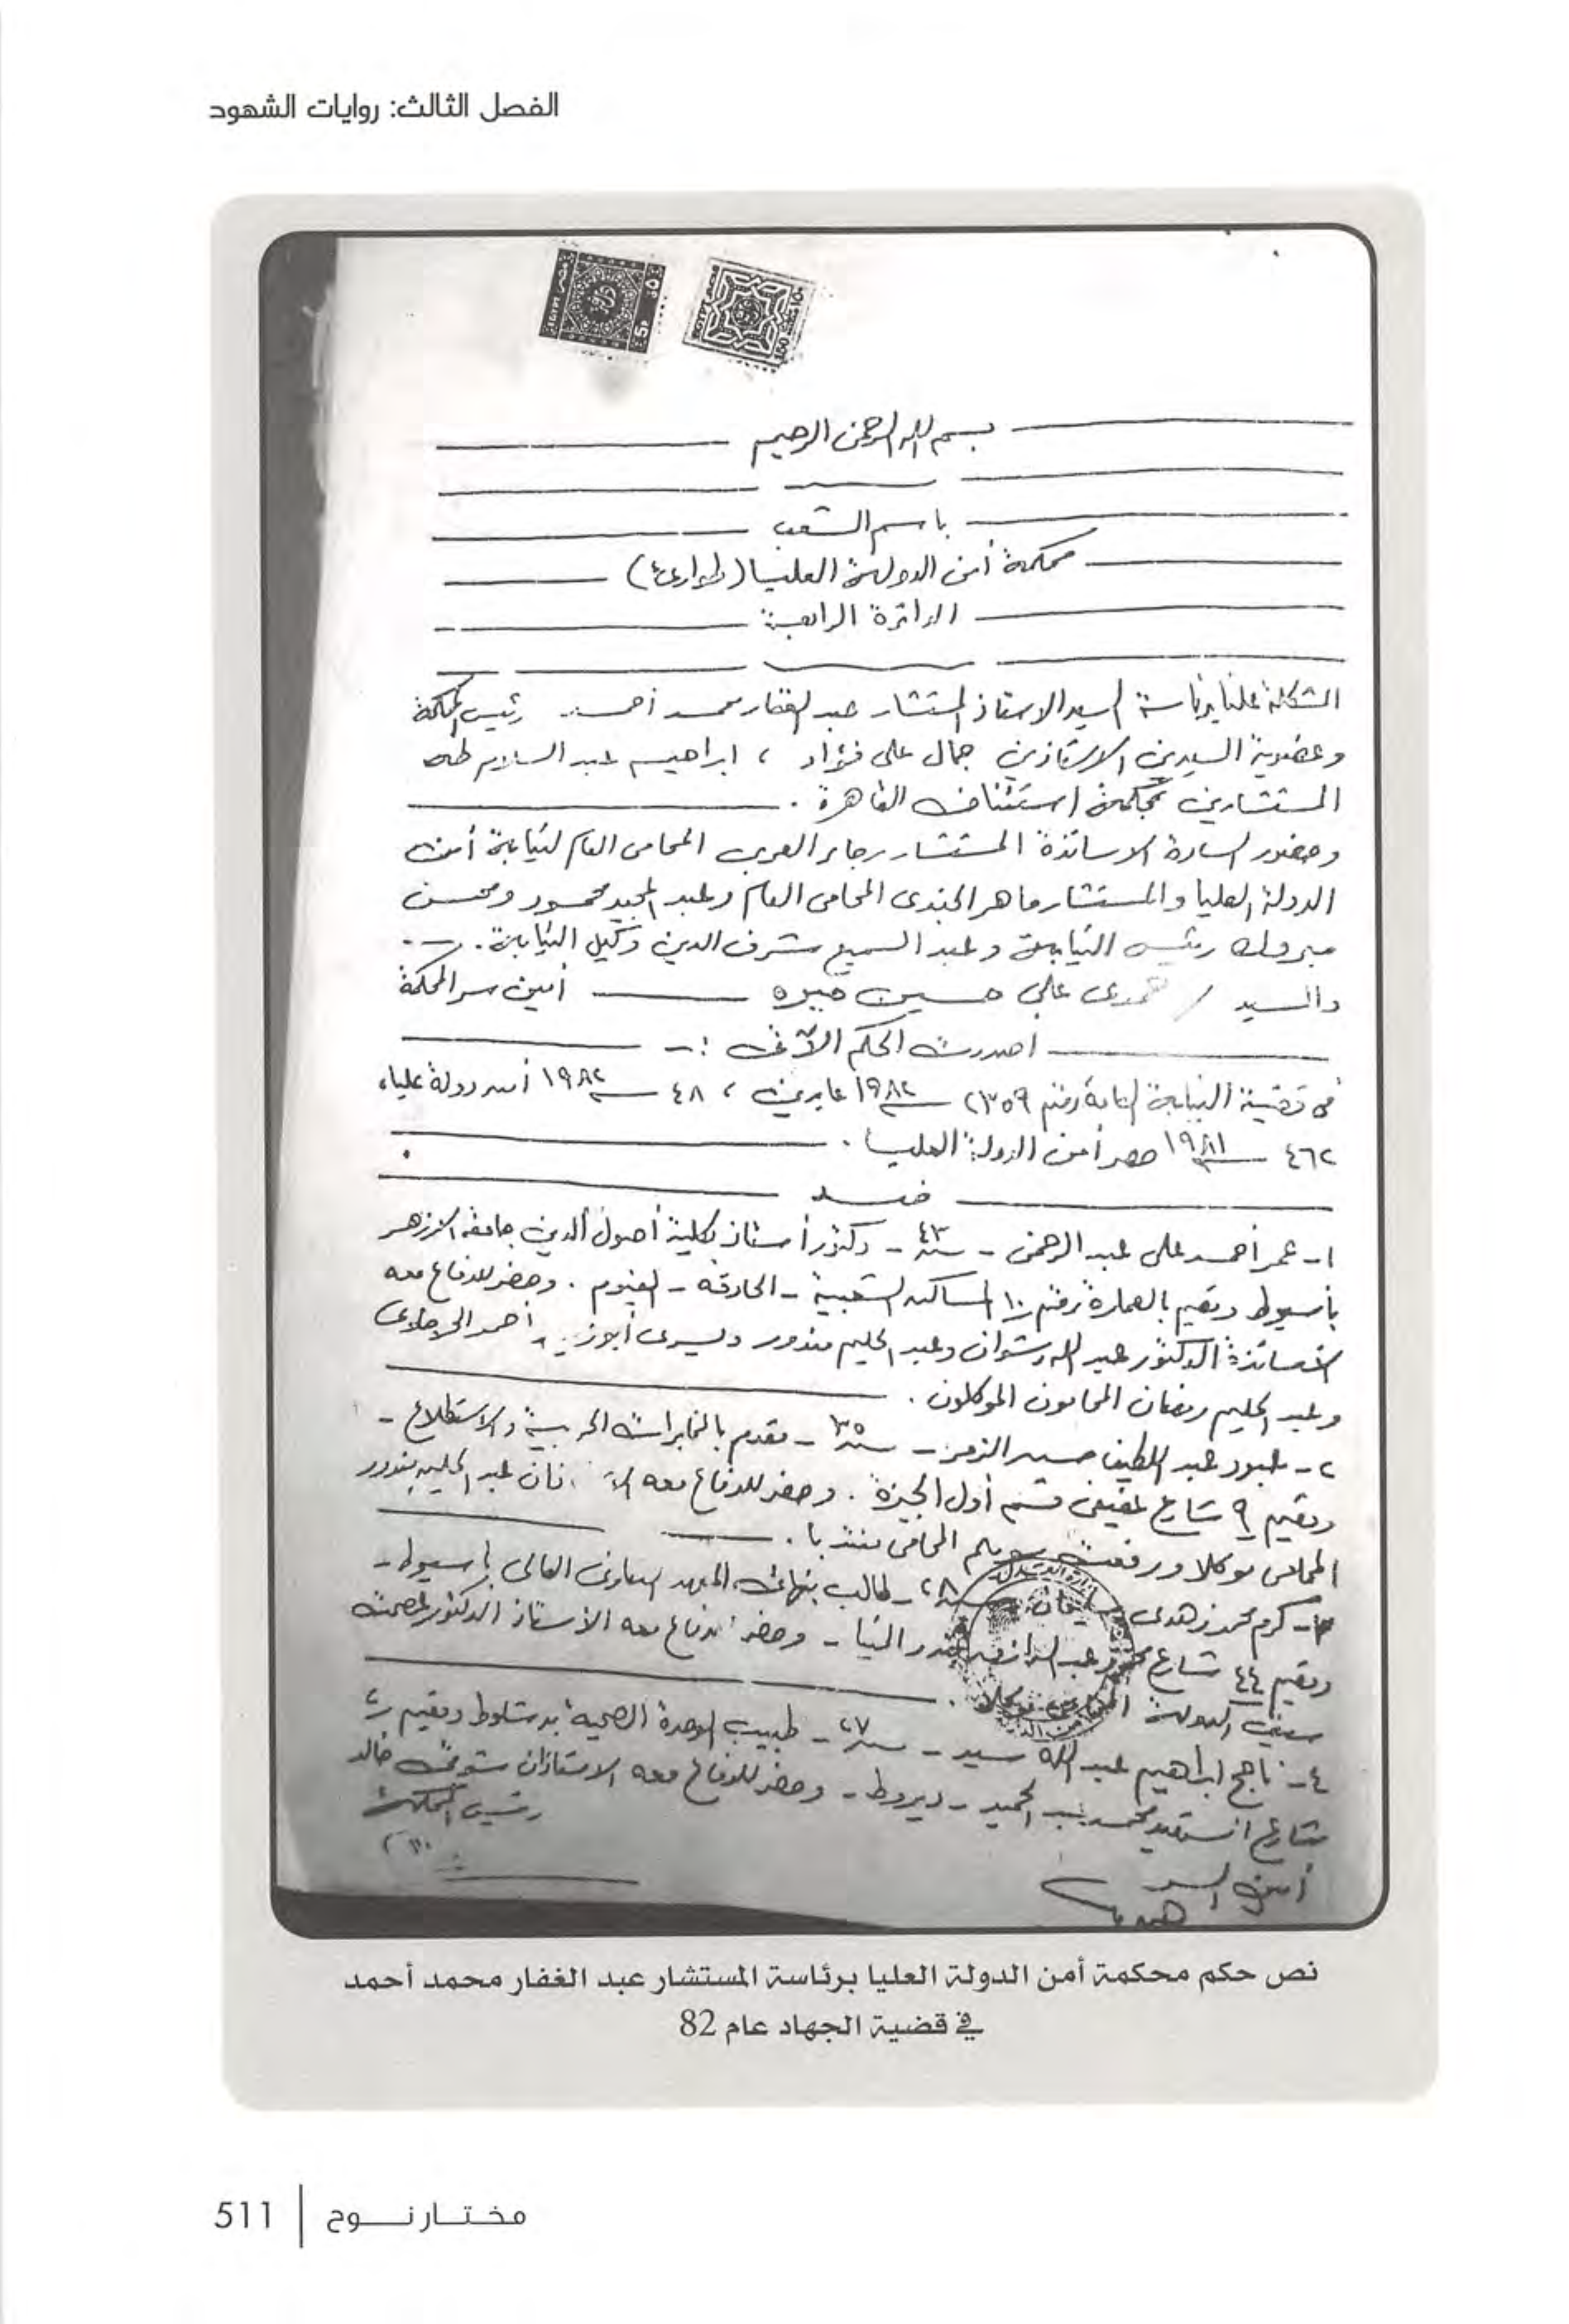 الفصل الثالث: روايات الشهود
بسم الله الرحمن الرحيم
باسم الشعب
محكمة أمن الدولة العليا (طوارئ)
الدائرة الرابعة
المشكلة علنا برئاسة السيد الاستاذ المستشار عبد الغفار محمد أحمد رئيس المحكمة
وعضوية السيدين الاستاذين جمال على فؤاد ، ابراهيم عبد السلام طه
المستشارين بمحكمة استئناف القاهرة .
وحضور السادة الاساتذة المستشار رجاء العربى المحامى العام لنيابة أمن
الدولة العليا والمستشار ماهر الجندى المحامى العام وعبد المجيد محمود ومحسن
مبروك رئيس النيابة وعبد السميع شرف الدين وكيل النيابة .
والسيد / حمدى على حسين أمين سر المحكمة
اصدرت الحكم الآتى :-
فى قضية النيابة العامة رقم ٢٣٥٩ سنة ١٩٨٢ عابدين ، ٤٨ سنة ١٩٨٢ أمن دولة عليا ،
٤٦٢ سنة ١٩٨١ حصر أمن الدولة العليا .
ضد
١- عمر أحمد على عبد الرحمن - سنه ٤٣ - دكتور أستاذ بكلية أصول الدين جامعة الازهر
بأسيوط ويقيم بالعمارة رقم ١٠ المساكن الشعبية - الحادقة - الفيوم . وحضر للدفاع معه
الأساتذة الدكتور عبد الله رشوان وعبد الحليم مندور ويسرى أحمد
وعبد الحليم رمضان المحامون الموكلون .
٢- عبود عبد اللطيف حسن الزمر - سنه ٣٥ - مقدم بالمخابرات الحربية والاستطلاع -
ويقيم ٩ شارع عفيفى قسم أول الجيزة . وحضر للدفاع معه عبد الحليم مندور
المحامى موكلا ورفعت المحامى منتدبا .
٣- كرم محمد زهدى سليمان سنه ٢٨ - طالب بنهائى المعهد التعاونى العالى بأسيوط -
ويقيم ٤٤ شارع بندر المنيا - وحضر للدفاع معه الأستاذ الدكتور عصمت
سيف الدولة المحامى موكلا .
٤- ناجح ابراهيم عبد الله سيد - سنه ٢٧ - طبيب الوحدة الصحية بدشلوط ويقيم
شارع محمد عبد الحميد - ديروط - وحضر للدفاع معه الاستاذان شوقى خالد
أمين السر
رئيس المحكمة
نص حكم محكمة أمن الدولة العليا برئاسة المستشار عبد الغفار محمد أحمد
في قضية الجهاد عام 82
مختار نوح
511